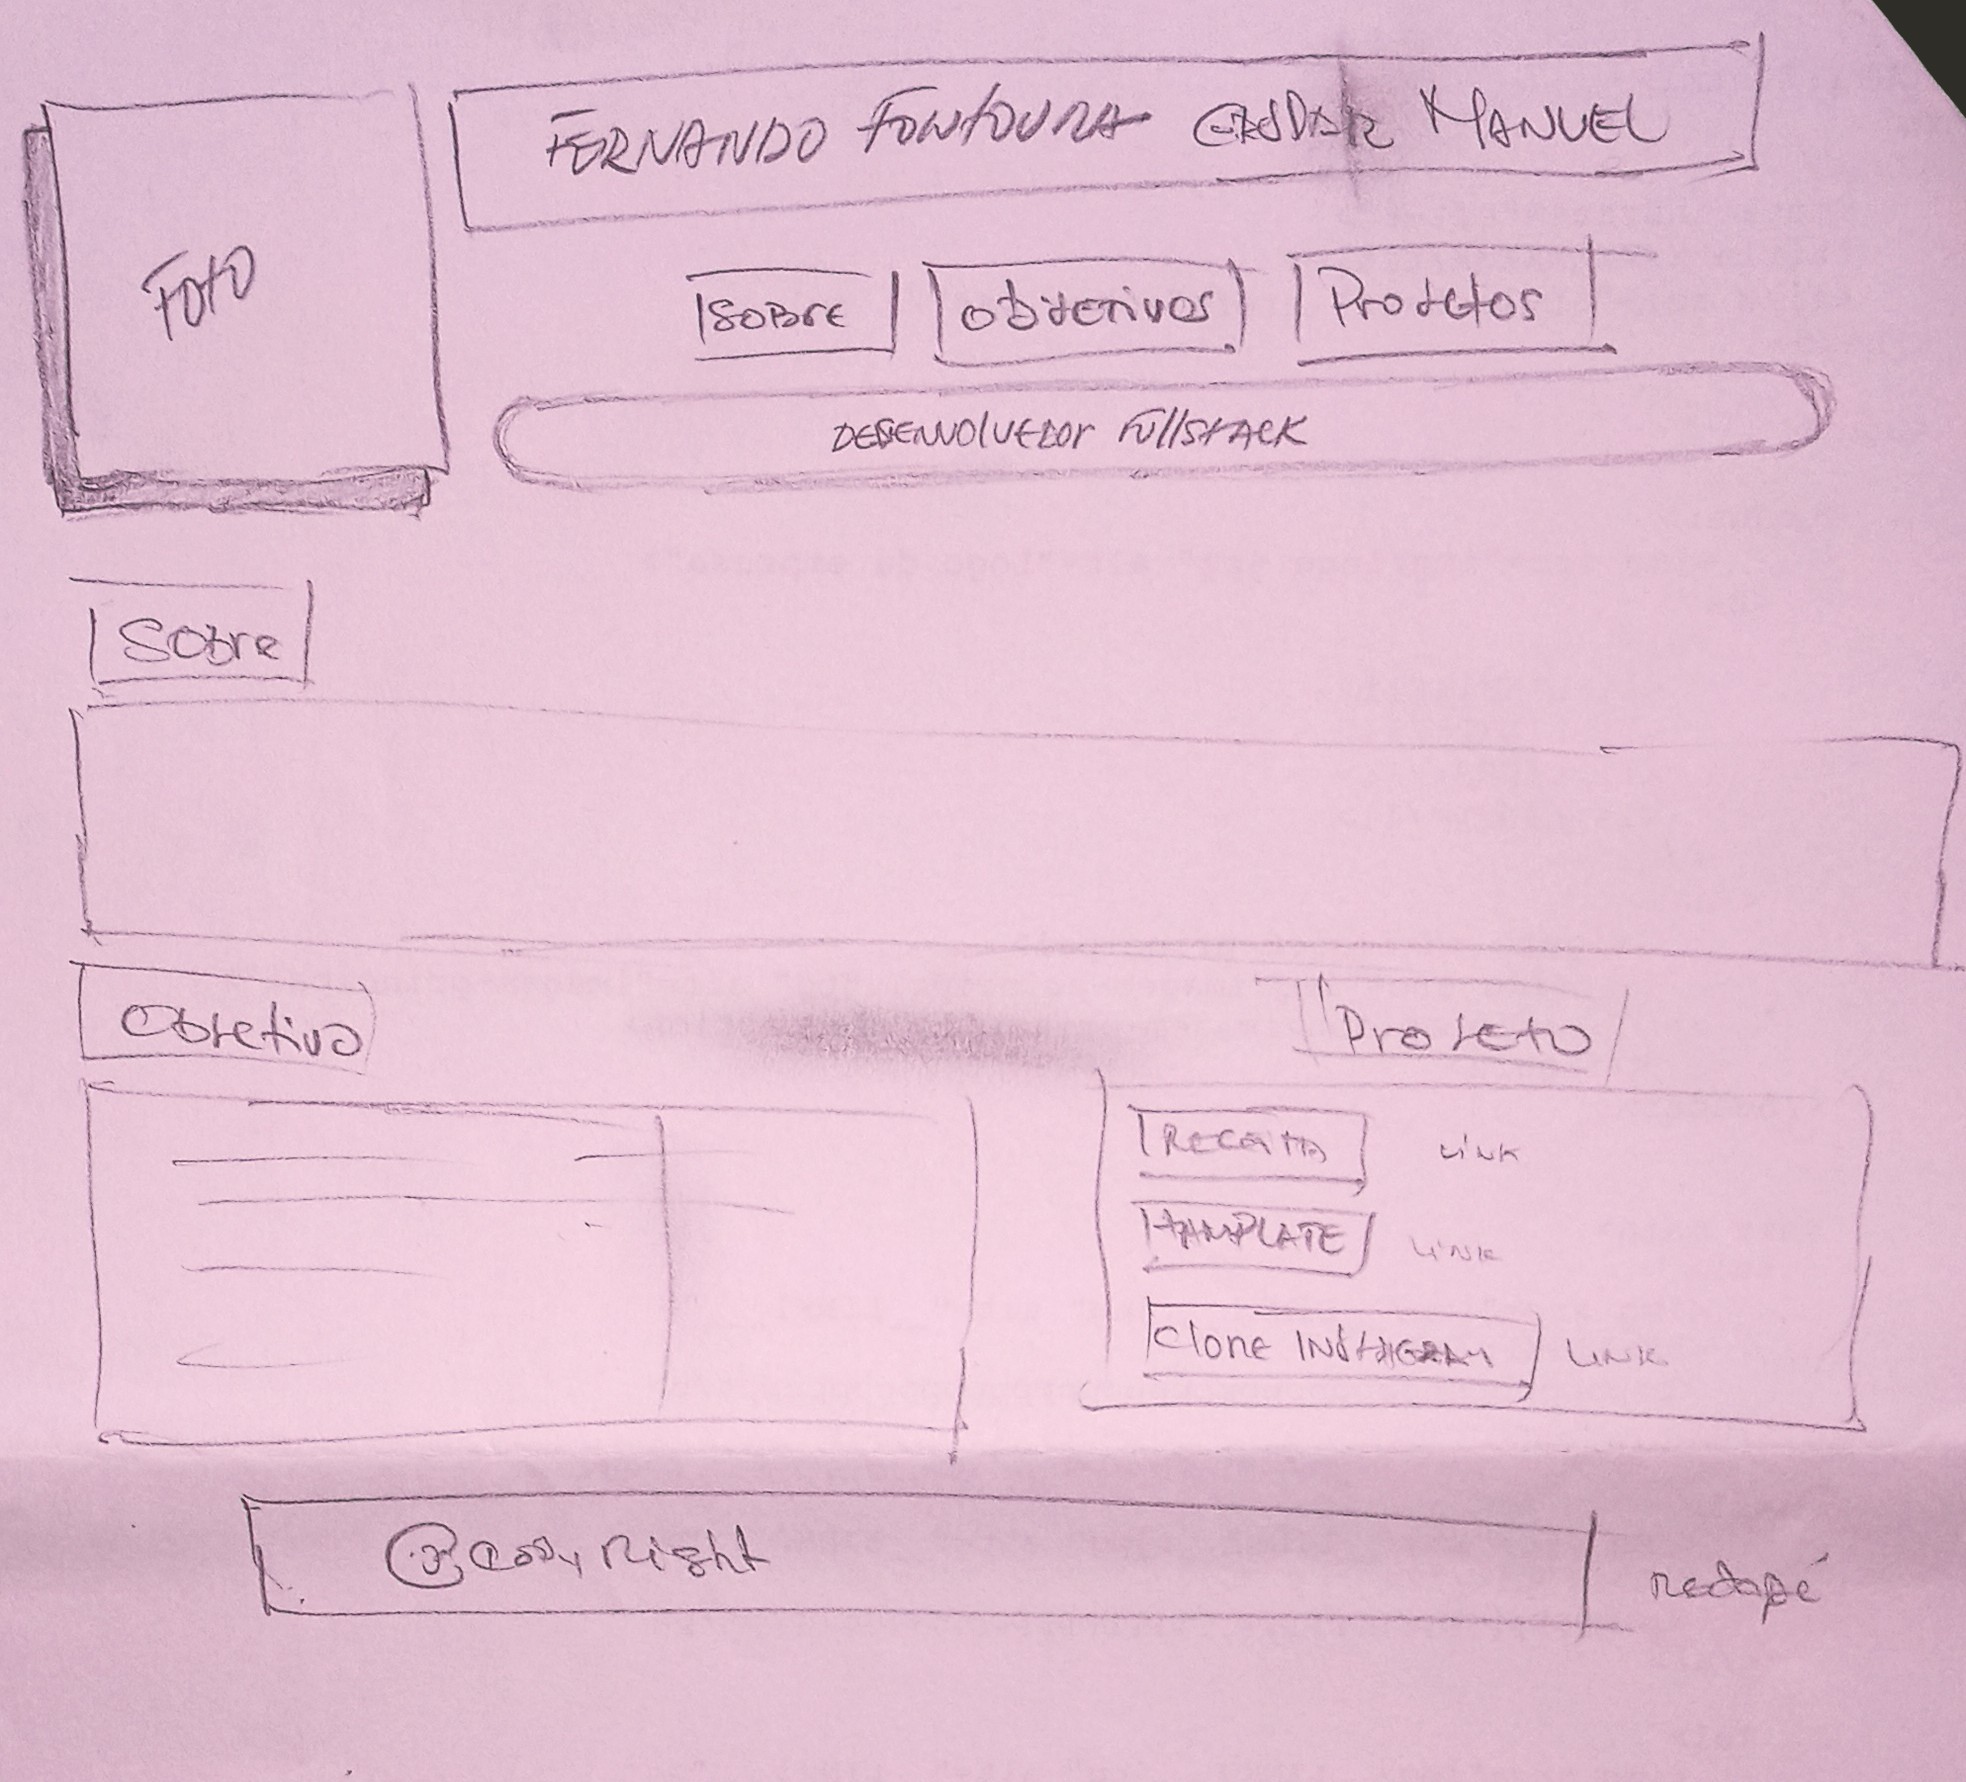 FOTO
FERNANDO FONTOURA MANUEL
SOBRE
Objetivos
Projetos
DESENVOLVEDOR FullSTACK
Sobre
Objetivo
Projeto
RECEITA LINK
TAMPLATE LINK
Clone INSTAGRAM LINK
@copyRight
Rodapé